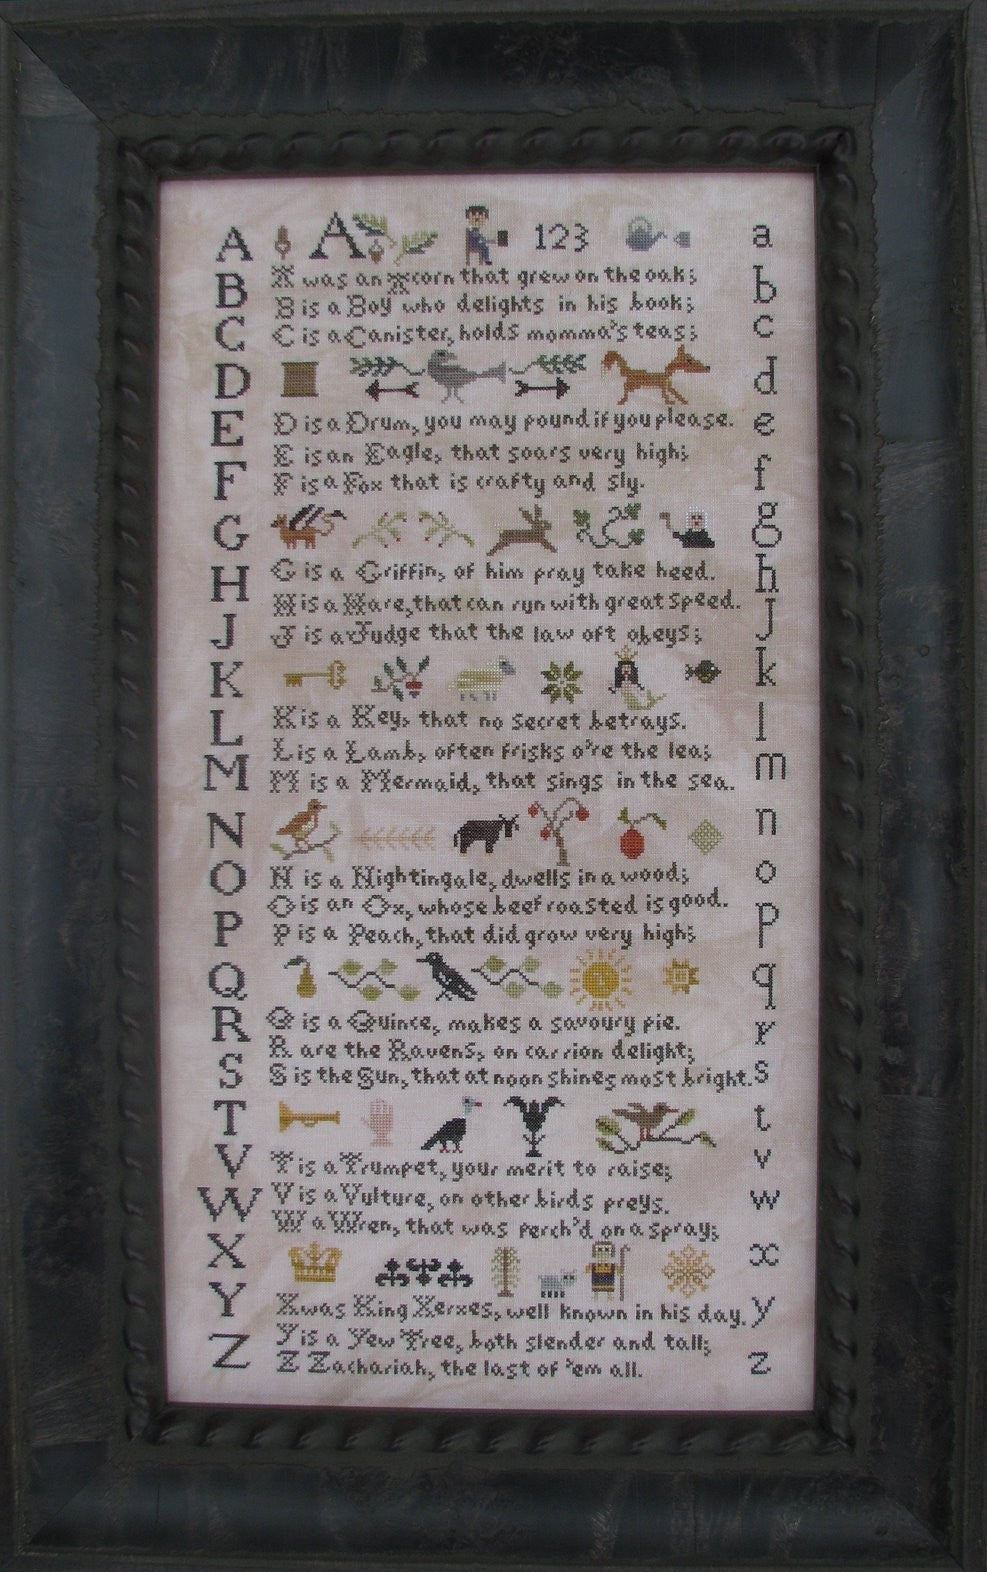 A A 123 a
A was an Acorn that grew on the oak;
B b
B is a Boy who delights in his book;
C c
C is a Canister, holds momma's teas;
D d
D is a Drum, you may pound if you please.
E e
E is an Eagle, that soars very high;
F f
F is a Fox that is crafty and sly.
G g
G is a Griffin, of him pray take heed.
H h
H is a Hare, that can run with great speed.
J j
J is a Judge that the law oft obeys;
K k
K is a Key, that no secret betrays.
L l
L is a Lamb, often frisks o're the lea;
M m
M is a Mermaid, that sings in the sea.
N n
N is a Nightingale, dwells in a wood;
O o
O is an Ox, whose beef roasted is good.
P p
P is a Peach, that did grow very high;
Q q
Q is a Quince, makes a savoury pie.
R r
R are the Ravens, on carrion delight;
S s
S is the Sun, that at noon shines most bright.
T t
T is a Trumpet, your merit to raise;
V v
V is a Vulture, on other birds preys.
W w
W a Wren, that was perch'd on a spray;
X x
X was King Xerxes, well known in his day.
Y y
Y is a Yew Tree, both slender and tall;
Z z
Z Zachariah, the last of 'em all.